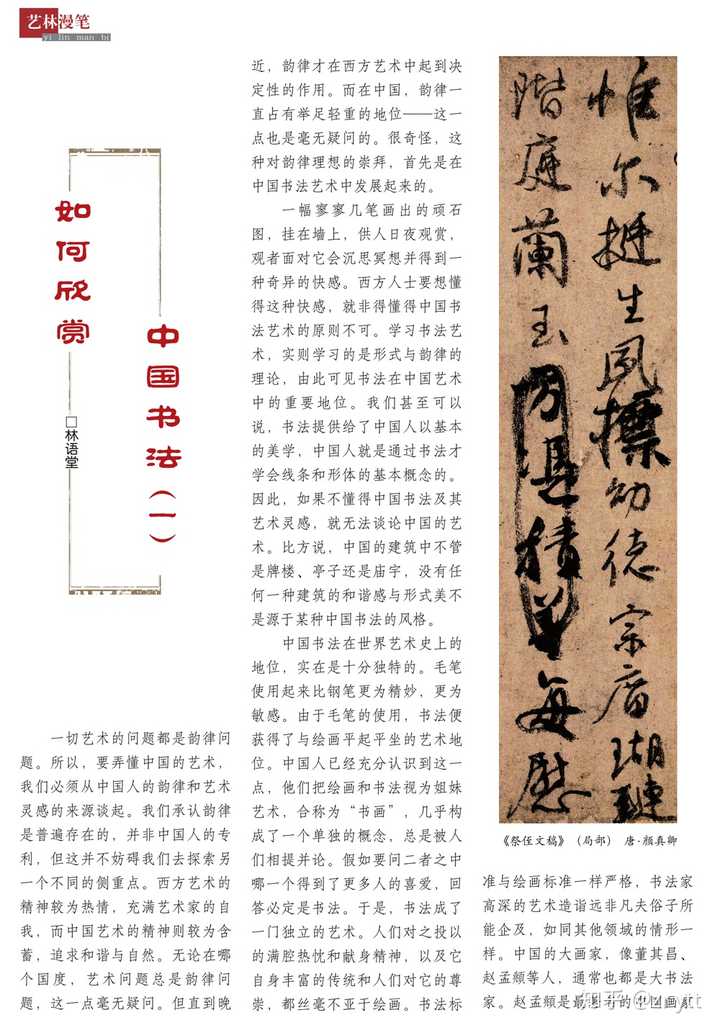 艺林漫笔
yi lin man bi
如何欣赏
中国书法(一)
□林语堂
一切艺术的问题都是韵律问
题。所以,要弄懂中国的艺术,
我们必须从中国人的韵律和艺术
灵感的来源谈起。我们承认韵律
是普遍存在的,并非中国人的专
利,但这并不妨碍我们去探索另
一个不同的侧重点。西方艺术的
精神较为热情,充满艺术家的自
我,而中国艺术的精神则较为含
蓄,追求和谐与自然。无论在哪
个国度,艺术问题总是韵律问
题,这一点毫无疑问。但直到晚
近,韵律才在西方艺术中起到决
定性的作用。而在中国,韵律一
直占有举足轻重的地位——这一
点也是毫无疑问的。很奇怪,这
种对韵律理想的崇拜,首先是在
中国书法艺术中发展起来的。
一幅寥寥几笔画出的顽石
图,挂在墙上,供人日夜观赏,
观者面对它会沉思冥想并得到一
种奇异的快感。西方人士要想懂
得这种快感,就非得懂得中国书
法艺术的原则不可。学习书法艺
术,实则学习的是形式与韵律的
理论,由此可见书法在中国艺术
中的重要地位。我们甚至可以
说,书法提供给了中国人以基本
的美学,中国人就是通过书法才
学会线条和形体的基本概念的。
因此,如果不懂得中国书法及其
艺术灵感,就无法谈论中国的艺
术。比方说,中国的建筑中不管
是牌楼、亭子还是庙宇,没有任
何一种建筑的和谐感与形式美不
是源于某种中国书法的风格。
中国书法在世界艺术史上的
地位,实在是十分独特的。毛笔
使用起来比钢笔更为精妙,更为
敏感。由于毛笔的使用,书法便
获得了与绘画平起平坐的艺术地
位。中国人已经充分认识到这一
点,他们把绘画和书法视为姐妹
艺术,合称为“书画”,几乎构
成了一个单独的概念,总是被人
们相提并论。假如要问二者之中
哪一个得到了更多人的喜爱,回
答必定是书法。于是,书法成了
一门独立的艺术。人们对之投以
的满腔热忱和献身精神,以及它
自身丰富的传统和人们对它的尊
崇,都丝毫不亚于绘画。书法标
惟尔挺生夙標幼德宗庿瑚璉
階庭蘭玉每慰
《祭侄文稿》(局部) 唐·颜真卿
准与绘画标准一样严格,书法家
高深的艺术造诣远非凡夫俗子所
能企及,如同其他领域的情形一
样。中国的大画家,像董其昌、
赵孟頫等人,通常也都是大书法
家。赵孟頫是最出名的中国画家
知乎